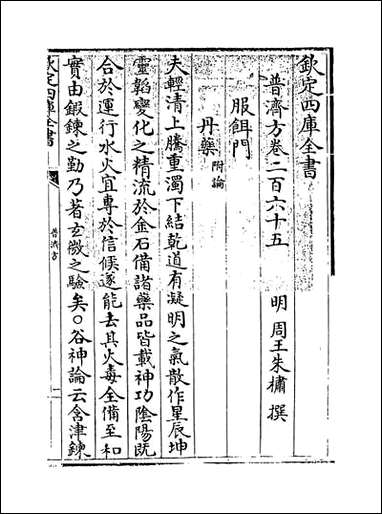 欽定四庫全書
普濟方卷二百六十五
明 周王朱橚 撰
服餌門
丹藥 附論
夫輕清上騰重濁下結乾道有凝明之氣散作星辰坤
靈韜變化之精流於金石備諸藥品皆載神功陰陽旣
合於運行水火宜專於信候遂能去其火毒全備至和
實由鍛鍊之勤乃著玄微之驗矣〇谷神論云含津鍊
欽定四庫全書
普濟方
一